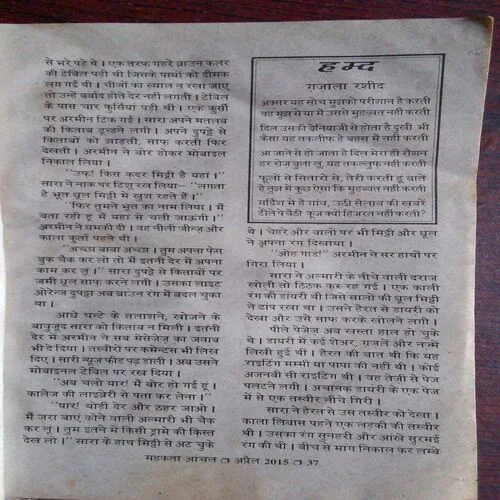 से भरे पड़े थे। एक तरफ गहरे ब्राउन कलर
की टेबिल पड़ी थी जिसके पायों को दीमक
लग गई थी। चीजों का ख्याल न रखा जाए
तो उन्हें बर्बाद होते देर नहीं लगती। टेबिल
के पास चार कुर्सियां पड़ी थी। एक कुर्सी
पर अरमीन टिक गई। सारा अपने मतलब
की किताब ढून्डने लगी। अपने दुपट्टे से
किताबों को झाड़ती, साफ करती फिर
देखती। अरमीन ने बोर होकर मोबाइल
निकाल लिया।
"उफ! किस कदर मिट्टी है यहां।"
सारा ने नाक पर टिशु रख लिया— "लगता
है भूत धूल मिट्टी में खुश रहते हैं।"
"फिर तुमने भूत का नाम लिया। मैं
बता रही हूं मैं यहां से चली जाऊंगी।"
अरमीन ने धमकी दी। वह नीली जीन्ज़ और
काला कुर्ता पहने थी।
"अच्छा बाबा अच्छा। तुम अपना फेस
बुक चैक कर लो तो मैं इतनी देर में अपना
काम कर लूं।" सारा दुपट्टे से किताबों पर
जमी धूल साफ करने लगी। उसका लाइट
ओरेन्ज दुपट्टा अब ब्राउन रंग में बदल चुका
था।
आधे घन्टे के तलाशने, खोजने के
बावुजूद सारा को किताब न मिली। इतनी
देर में अरमीन ने सब मेसेजेज़ का जवाब
भी दे दिया। तस्वीरों पर कमेन्टस भी लिख
दिए। सारी न्यूज फीड पढ़ डाली। अब उसने
मोबाइनल टेबिल पर रख दिया।
"अब चलो यार! मैं बोर हो गई हूं।
कालेज की लाइब्रेरी से पता कर लेना।"
"यार! थोड़ी देर और ठहर जाओ।
मैं जरा बाएं कोने वाली अल्मारी भी चैक
कर लूं। तुम इतने में किसी ड्रामे की किस्त
देख लो।" सारा के हाथ मिट्टी से अट चुके
हम्द
ग़जाला रशीद
अक्सर यह सोच मुझको परीशान है करती
वह मुझ से या मैं उससे मुहब्बत नहीं करती
दिल उसकी से होता है दुखी भी
कैसा यह तकल्लुफ है बहस में नहीं करती
आ जाने से हो जाता है दिल मेरा ही रौशन
हर रोज़ बुला लूं, यह तकल्लुफ नहीं करती
फूलों से सितारों से, तेरी करती हूं बातें
है तुझ में कुछ ऐसा कि मुहब्बत नहीं करती
गर्दिश में है गांव, उठी सैलाब की ख़बरें
टीले पे बैठी कूंज क्यों हिजरत नहीं करती?
थे। चेहरे और बालों पर भी मिट्टी और धूल
ने अपना रंग दिखाया।
"ओह गाड!" अरमीन ने सर हाथों पर
गिरा लिया।
सारा ने अल्मारी के नीचे वाली दराज
खोली तो ठिठक कर रह गई। एक काली
रंग की डायरी थी जिसे सालों की धूल मिट्टी
ने ढांप रखा था। उसने हैरत से डायरी को
देखा और उसे साफ करके खोलने लगी।
पीले पेजेज़ अब खस्ता हाल हो चुके
थे। डायरी में कई शेअर, गजलें और नज्में
लिखी हुई थीं। हैरत की बात थी कि यह
राइटिंग मम्मी या पापा की नहीं थी। कोई
अजनबी सी राइटिंग थी। वह तेज़ी से पेज
पलटने लगी। अचानक डायरी के एक पेज
में से एक तस्वीर नीचे गिरी।
सारा ने हैरत से उस तस्वीर को देखा।
काला लिबास पहने एक लड़की की तस्वीर
थी। उसका रंग सुनहरी और आंखें सुरमई
रंग की थी। बीच से मांग निकाल कर लम्बे
महकता आंचल ❏ अप्रैल 2015 ❏ 37